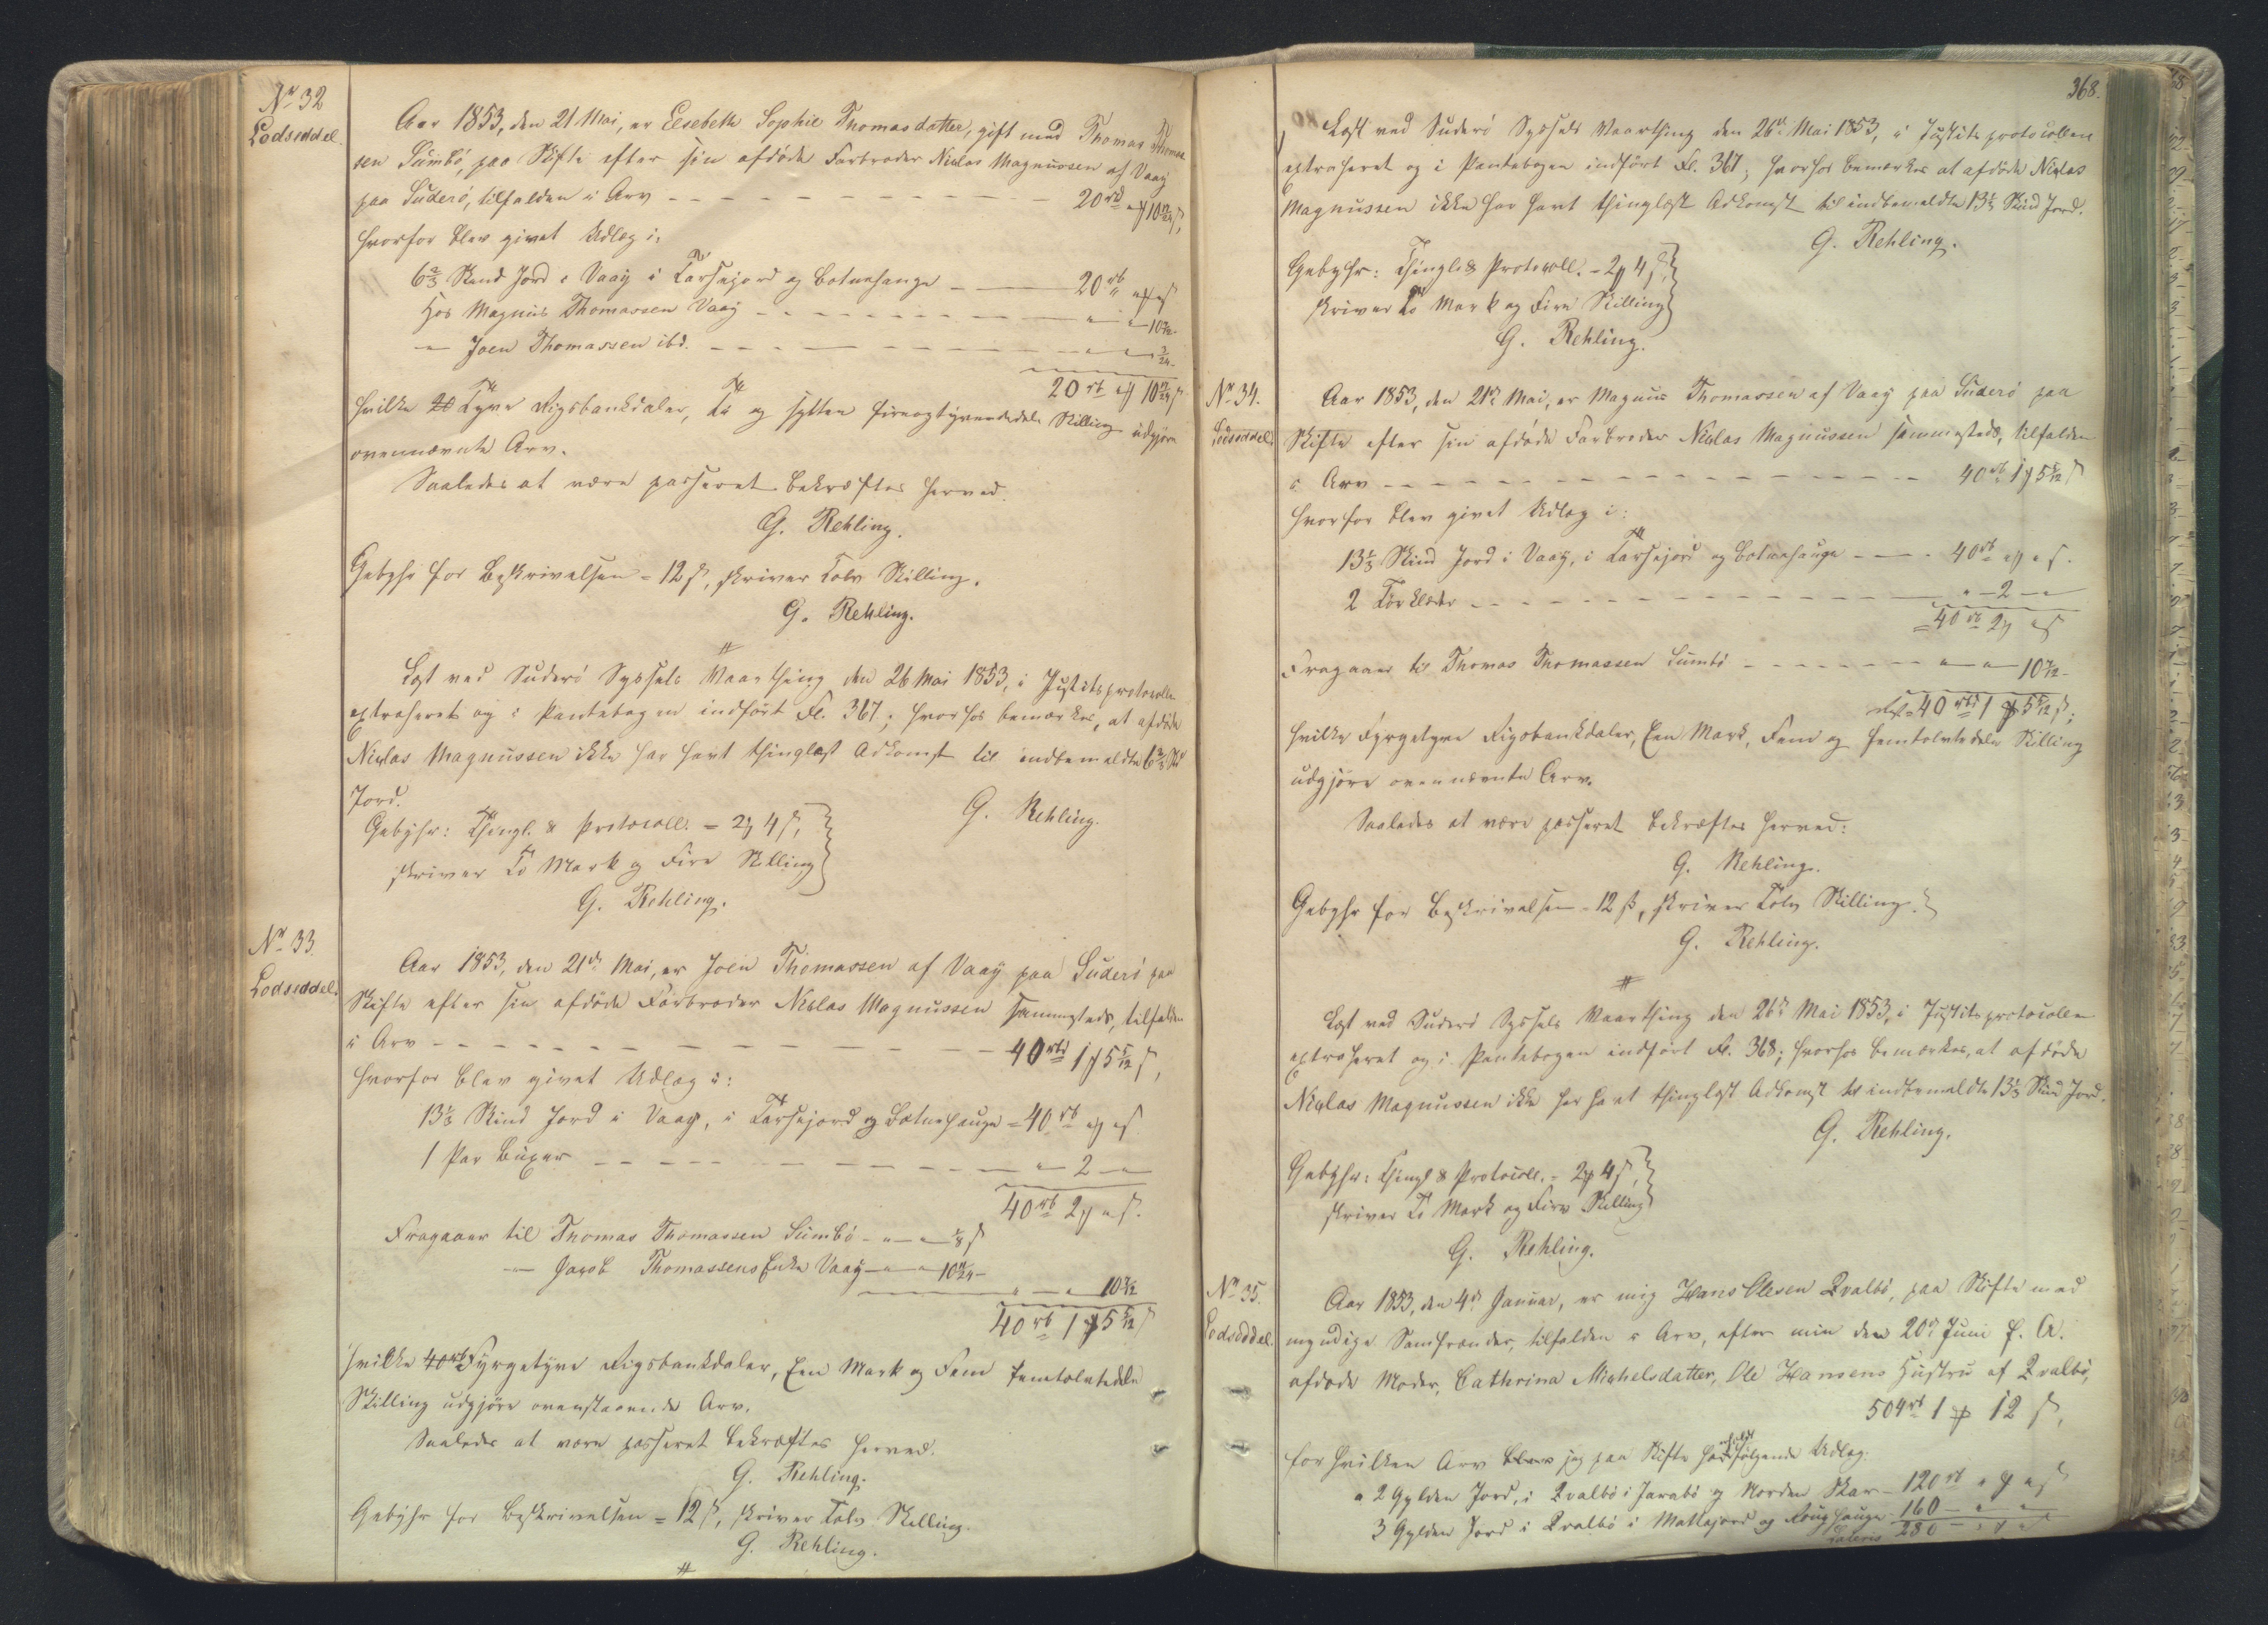 No 32
Lodseddel.
Aar 1853, den 21 Mai, er Elsebeth Sophie Thomasdatter, gift med Thomas Thomas-
sen Sumbö, paa Skifte efter sin afdöde Farbroder Niclas Magnussen af Vaag
paa Suderö, tilfalden i Arv - - - 20 rb " 10 17/24 s,
hvorfor blev givet Udlæg i:
6 2/3 Skind Jord i Vaag i Tarsejord og Botnehauge - 20 rb " "
Hos Magnus Thomassen Vaag - - - " " 10 7/12 -
" Joen Thomassen ibd. - - - " " 3/24 -
20 rb " 10 17/24 s
hvilke Tyve Rigsbankdaler, Ti og sytten fireogtyvendedele Skilling udgjöre
ovennævnte Arv.
Saaledes at være passeret bekræftes herved.
G. Rehling.
Gebyhr for Beskrivelsen = 12 s, skriver Tolv Skilling.
G. Rehling.
Læst ved Suderö Syssels Vaarthing den 26 Mai 1853, i Justitsprotocollen
extraheret og i Pantebogen indfört Fl. 367; hvorhos bemærkes, at afdöde
Niclas Magnussen ikke har havt thinglæst Adkomst til indbemeldte 6 2/3 Sk
Jord.
G. Rehling.
Gebyhr: Thingl. & Protocoll. = 2 4 s,
skriver To Mark og Fire Skilling
G. Rehling.
No 33.
Lodseddel.
Aar 1853, den 21de Mai, er Joen Thomassen af Vaag paa Suderö paa
Skifte efter sin afdöde Farbroder Niclas Magnussen sammesteds, tilfalden
i Arv - - - 40 rbd 1 5 5/12 s,
hvorfor blev givet Udlæg i:
13 1/3 Skind Jord i Vaag, i Tarsejord og Botnehauge = 40 rb " " s
1 Par Buxer - - - " 2 "
40 rb 2 " s.
Fragaaer til Thomas Thomassen Sumbö - " - " 1/8 s
" Jacob Thomassens Enke Vaag - " " 10 11/24 -
" " 10 7/12
40 rb 1 5 5/12 s
hvilke Fyrgetyve Rigsbankdaler, Een Mark og Fem femtolvtedele
Skilling udgjöre ovenstaaende Arv.
Saaledes at være passeret bekræftes herved.
G. Rehling.
Gebyhr for Beskrivelsen = 12 s, skriver Tolv Skilling.
G. Rehling.
368.
Læst ved Suderö Syssels Vaarthing den 26de Mai 1853, i Justitsprotocollen
extraheret og i Pantebogen indfört Fl. 367; hvorhos bemærkes at afdöde Niclas
Magnussen ikke har havt thinglæst Adkomst til indbemeldte 13 1/3 Skind Jord.
G. Rehling.
Gebyhr: Thingl. & Protocoll. = 2 4 s,
skriver To Mark og Fire Skilling
G. Rehling.
No 34.
Lodseddel.
Aar 1853, den 21de Mai, er Magnus Thomassen af Vaag paa Suderö paa
Skifte efter sin afdöde Farbroder Niclas Magnussen sammesteds, tilfalden
i Arv - - - 40 rb 1 5 5/12 s
hvorfor blev givet Udlæg i:
13 1/3 Skind Jord i Vaag, i Tarsejord og Botnehauge - - 40 rb " " s.
2 Törklæder - - - " 2 "
40 rb 2 " s
Fragaaer til Thomas Thomassen Sumbö - - - " " 10 7/12 -
40 rbd 1 5 5/12 s;
hvilke Fyrgetyve Rigsbankdaler, Een Mark, Fem og femtolvtedele Skilling
udgjöre ovennævnte Arv.
Saaledes at være passeret bekræftes herved:
G. Rehling.
Gebyhr for Beskrivelsen = 12 s, skriver Tolv Skilling.
G. Rehling.
Læst ved Suderö Syssels Vaarthing den 26de Mai 1853, i Justitsprotocollen
extraheret og i Pantebogen indfört Fl. 368; hvorhos bemærkes, at afdöde
Niclas Magnussen ikke har havt thinglæst Adkomst til indbemeldte 13 1/3 Skind Jord.
G. Rehling.
Gebyhr: Thingl & Protocoll. = 2 4 s,
skriver To Mark og Fire Skilling
G. Rehling.
No 35.
Lodseddel.
Aar 1853, den 4de Januar, er mig Hans Olesen Qvalbö, paa Skifte med
myndige Samfrænder, tilfalden i Arv, efter min den 20de Juni f. A.
afdöde Moder, Cathrina Michelsdatter, Ole Hansens Hustru af Qvalbö,
504 rb 1 12 s,
for hvilken Arv jeg paa Skifte erholdt fölgende Udlæg:
2 Gylden Jord, i Qvalbö i Jarabö og Norden Skar - 120 rb " " s
3 Gylden Jord i Qvalbö i Mattajord og hauge 160 - " "
Lateris 280 - " "